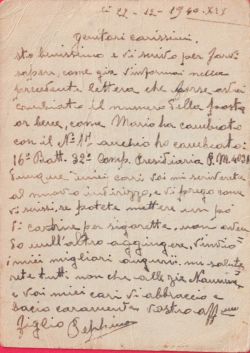 li 22-12-1940.XIX
Genitori carissimi
sto benissimo e vi scrivo per farvi
sapere, come già v'informai nella
precedente lettera che forse avrei
cambiato il numero della posta
or bene, come Mario ha cambiato
con il N° 1° anch'io ho cambiato:
16° Batt. 92° Comp. Presidiaria P.M.
Dunque miei cari voi mi scriverete
al nuovo indirizzo, e vi prego come
vi scrissi, se potete mettere un po'
di cartine per sigarette, non aven
do null'altro aggiungere, v'invio
i miei migliori auguri, mi salute
rete tutti non che alle zie
e voi miei cari vi abbraccio e
bacio caramente vostro aff.mo
figlio Peppino